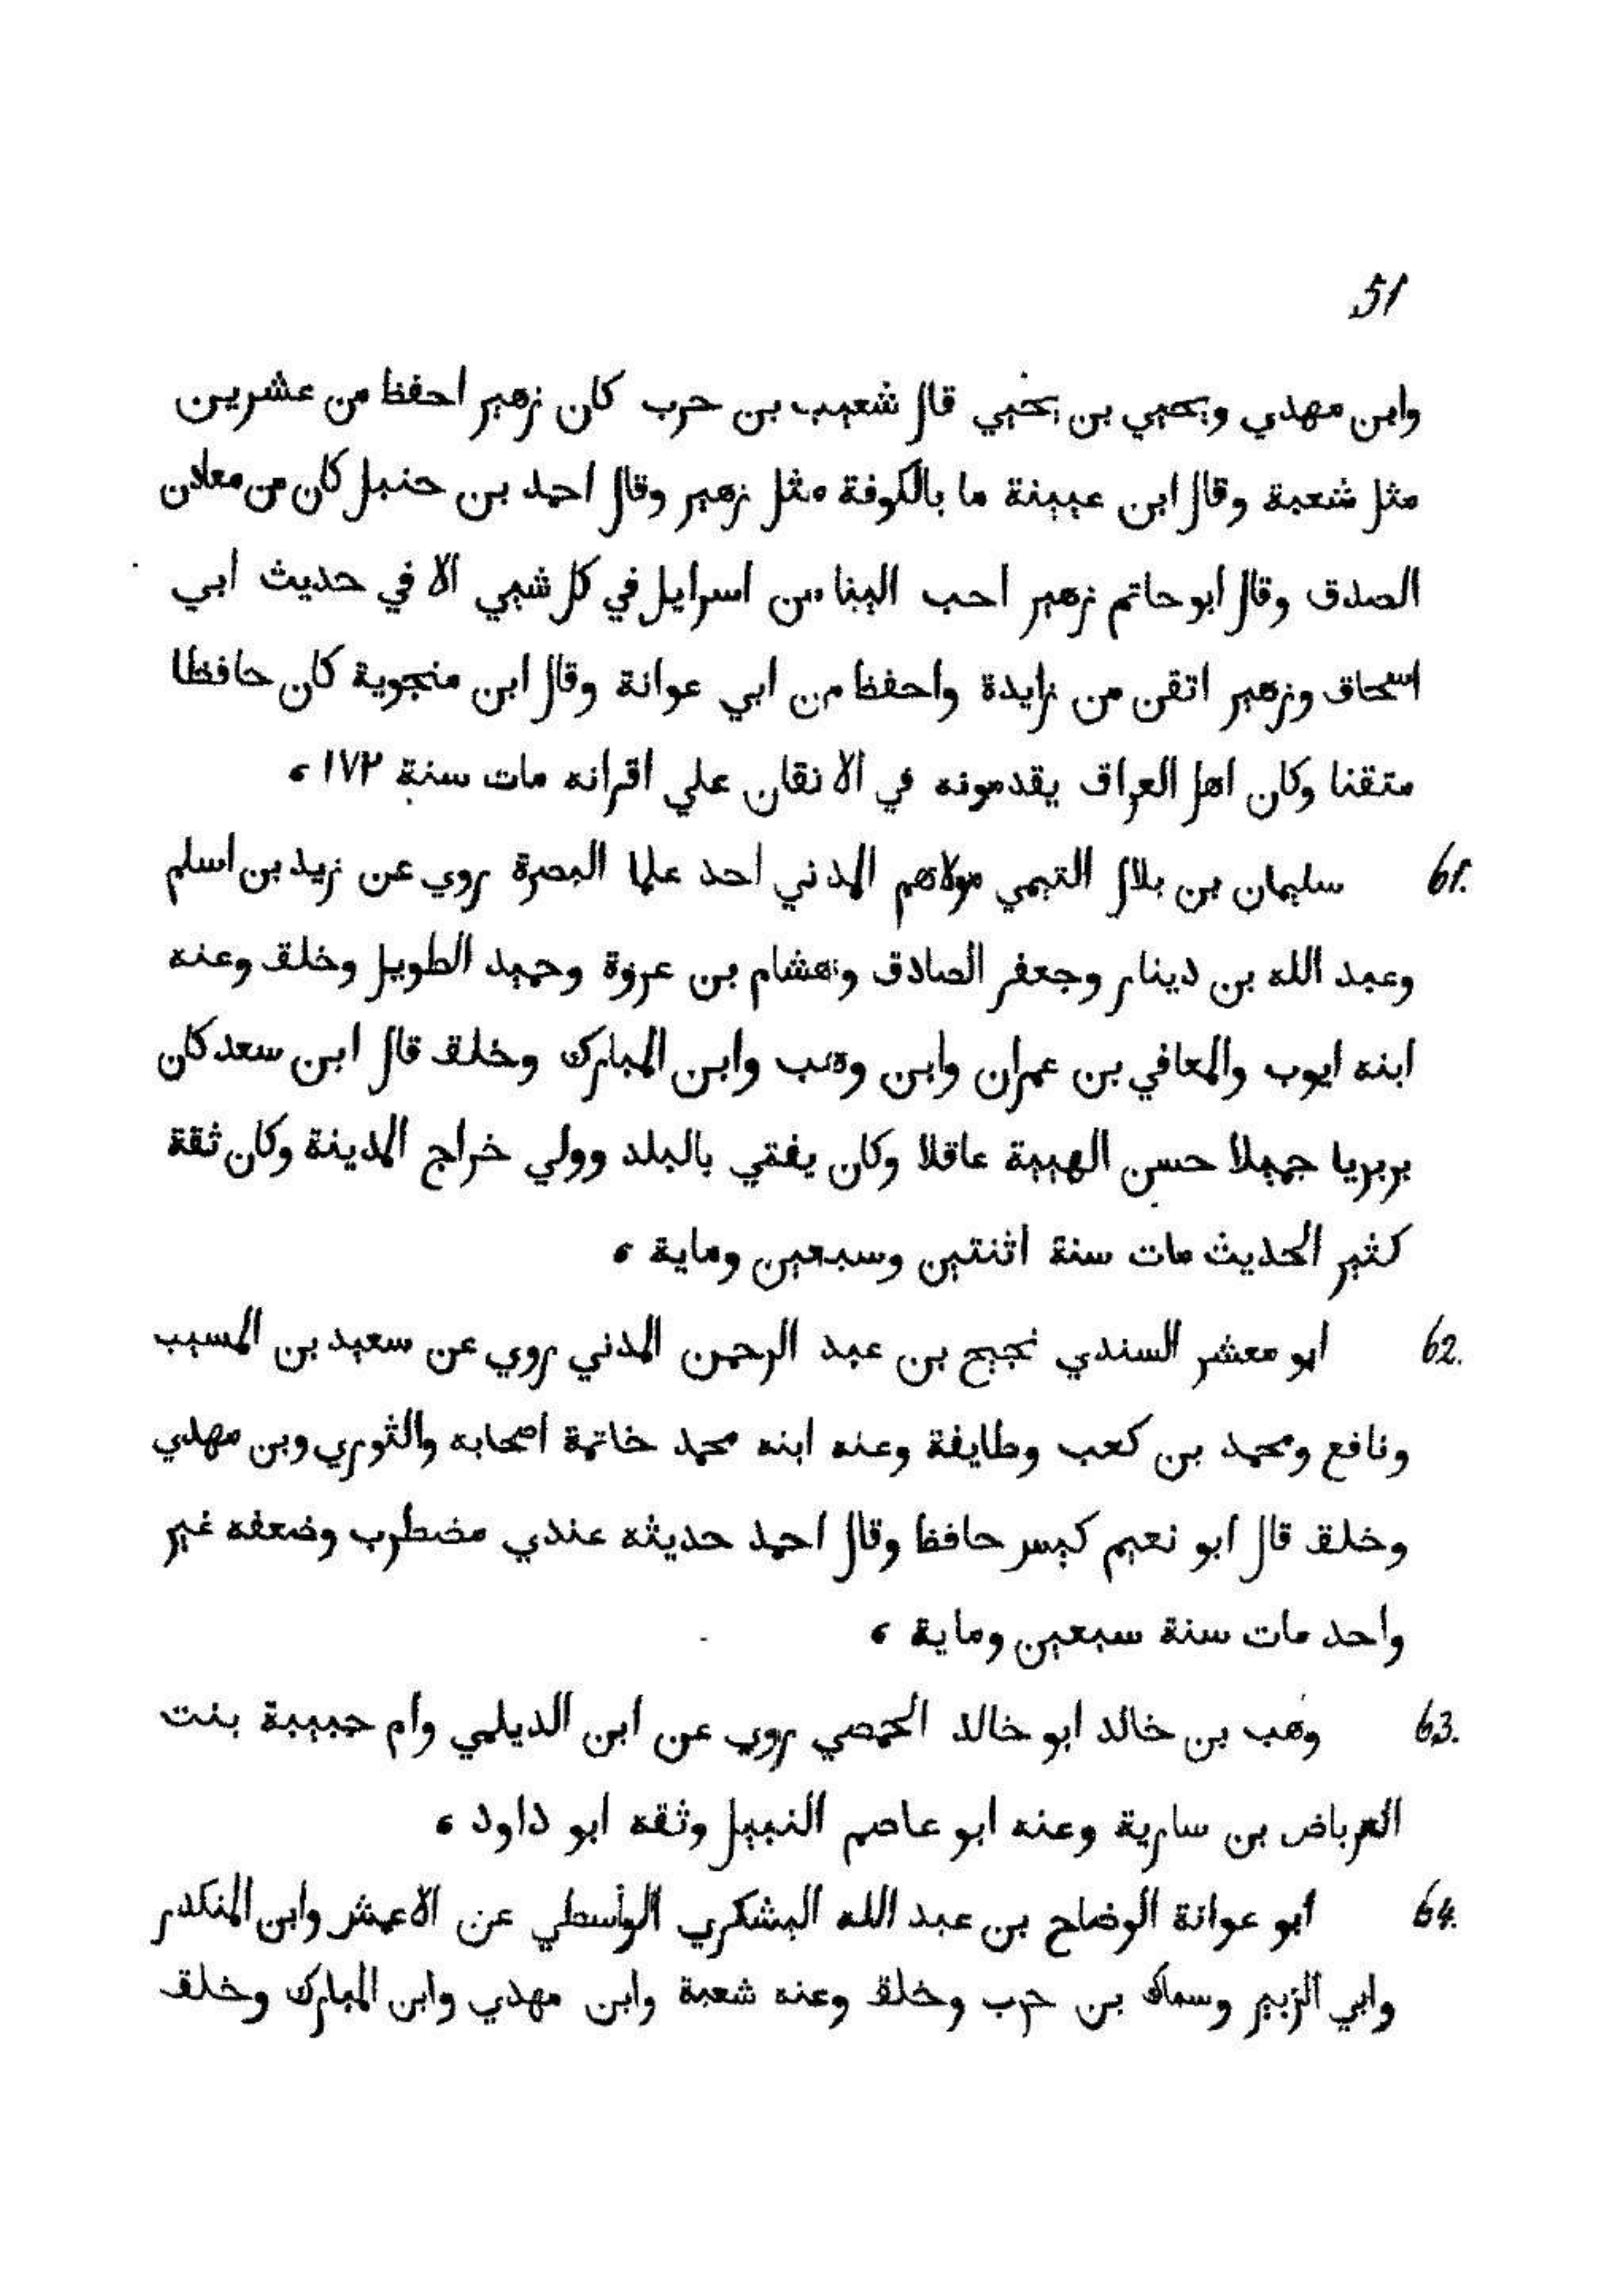 51
وابن مهدي ويحيي بن يحيي قال شعيب بن حرب كان زهير احفظ من عشرين
مثل شعبة وقال ابن عيينة ما بالكوفة مثل زهير وقال احمد بن حنبل كان من معادن
الصدق وقال ابو حاتم زهير احب الينا من اسرايل في كل شيي الا في حديث ابي
اسحاق وزهير اتقن من زايدة واحفظ من ابي عوانة وقال ابن منجوية كان حافظا
متقنا وكان اهل العراق يقدمونه في الاتقان علي اقرانه مات سنة ١٧٢ ،
61. سليمان بن بلال التيمي مولاهم المدني احد علما البصرة روي عن زيد بن اسلم
وعبد الله بن دينار وجعفر الصادق وهشام بن عروة وحميد الطويل وخلق وعنه
ابنه ايوب والمعافي بن عمران وابن وهب وابن المبارك وخلق قال ابن سعد كان
بربريا جميلا حسن الهيية عاقلا وكان يفتي بالبلد وولي خراج المدينة وكان ثقة
كثير الحديث مات سنة اثنتين وسبعين وماية ،
62. ابو معشر السندي نجيح بن عبد الرحمن المدني روي عن سعيد بن المسيب
ونافع ومحمد بن كعب وطايفة وعنه ابنه محمد خاتمة اصحابه والثوري وبن مهدي
وخلق قال ابو نعيم كيس حافظ وقال احمد حديثه عندي مضطرب وضعفه غير
واحد مات سنة سبعين وماية ،
63. وهب بن خالد ابو خالد الحمصي روي عن ابن الديلمي وام حبيبة بنت
العرباض بن سارية وعنه ابو عاصم النبيل وثقه ابو داود ،
64. ابو عوانة الوضاح بن عبد الله اليشكري الواسطي عن الاعمش وابن المنكدر
وابي الزبير وسماك بن حرب وخلق وعنه شعبة وابن مهدي وابن المبارك وخلق